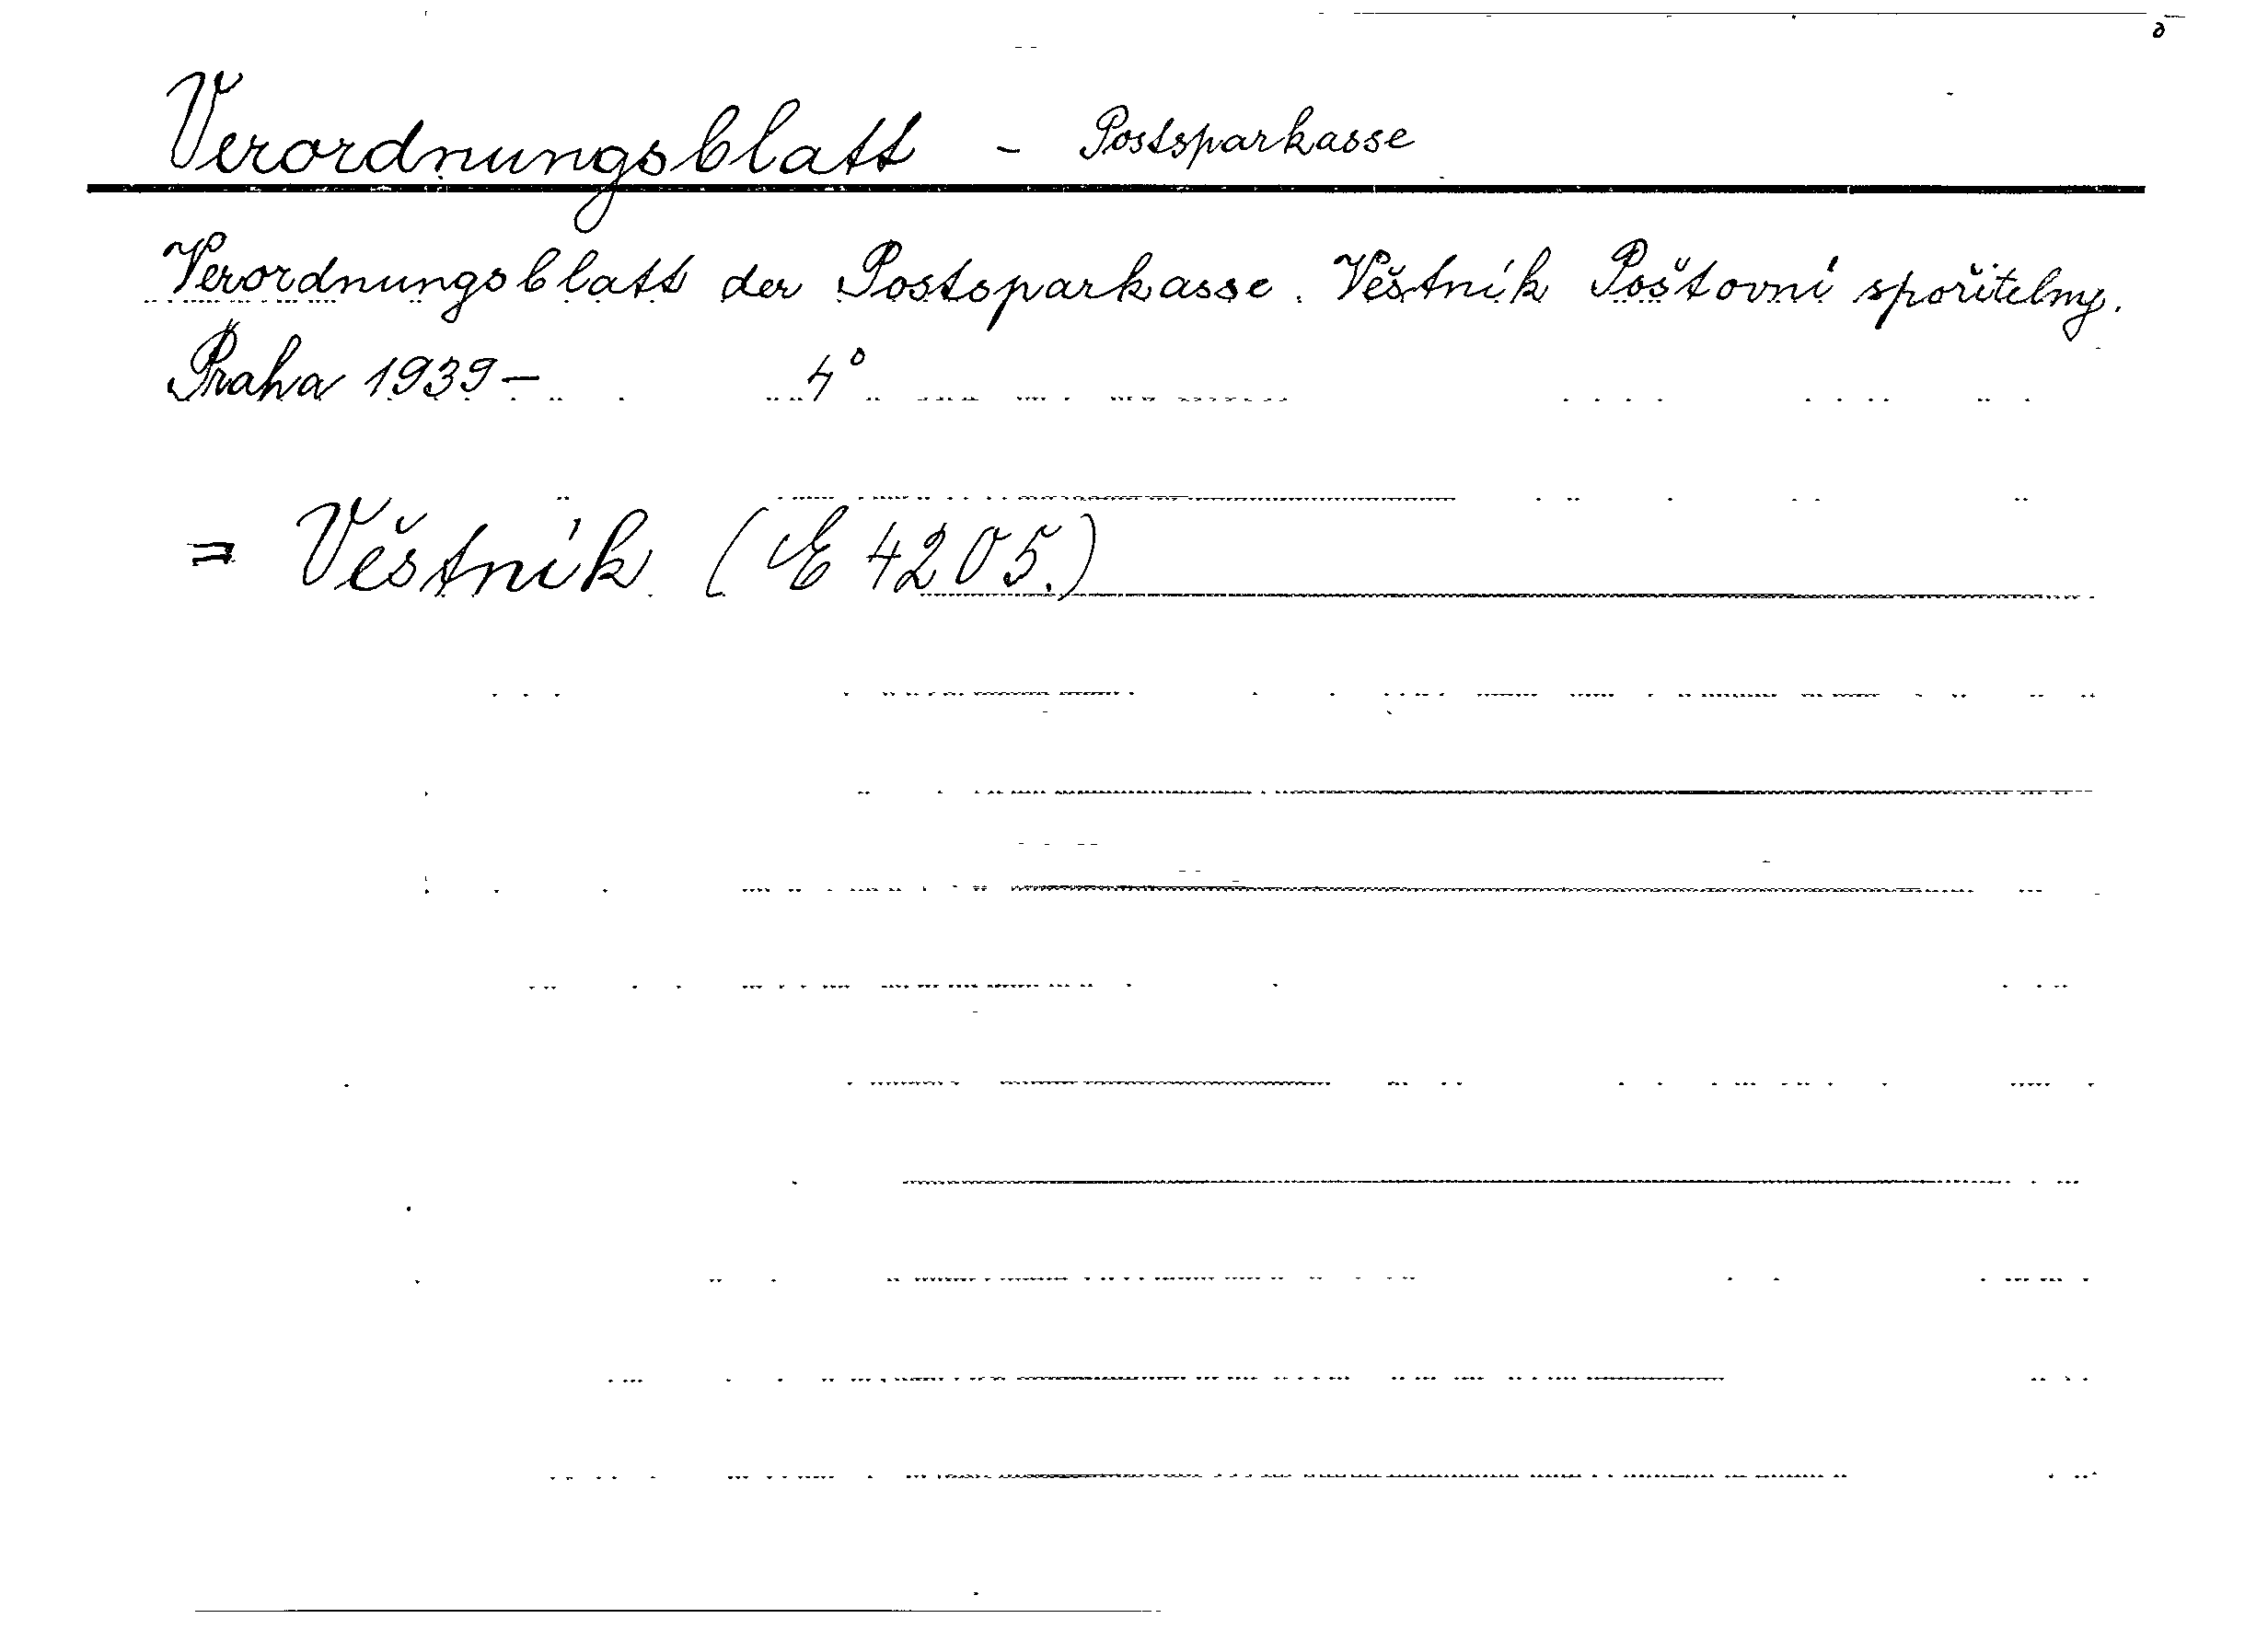 Verordnungsblatt - Postsparkasse
Verordnungsblatt der Postsparkasse. Věštník Poštovní spořitelny.
Praha 1939- 4°
= Věstník (E 4205.)